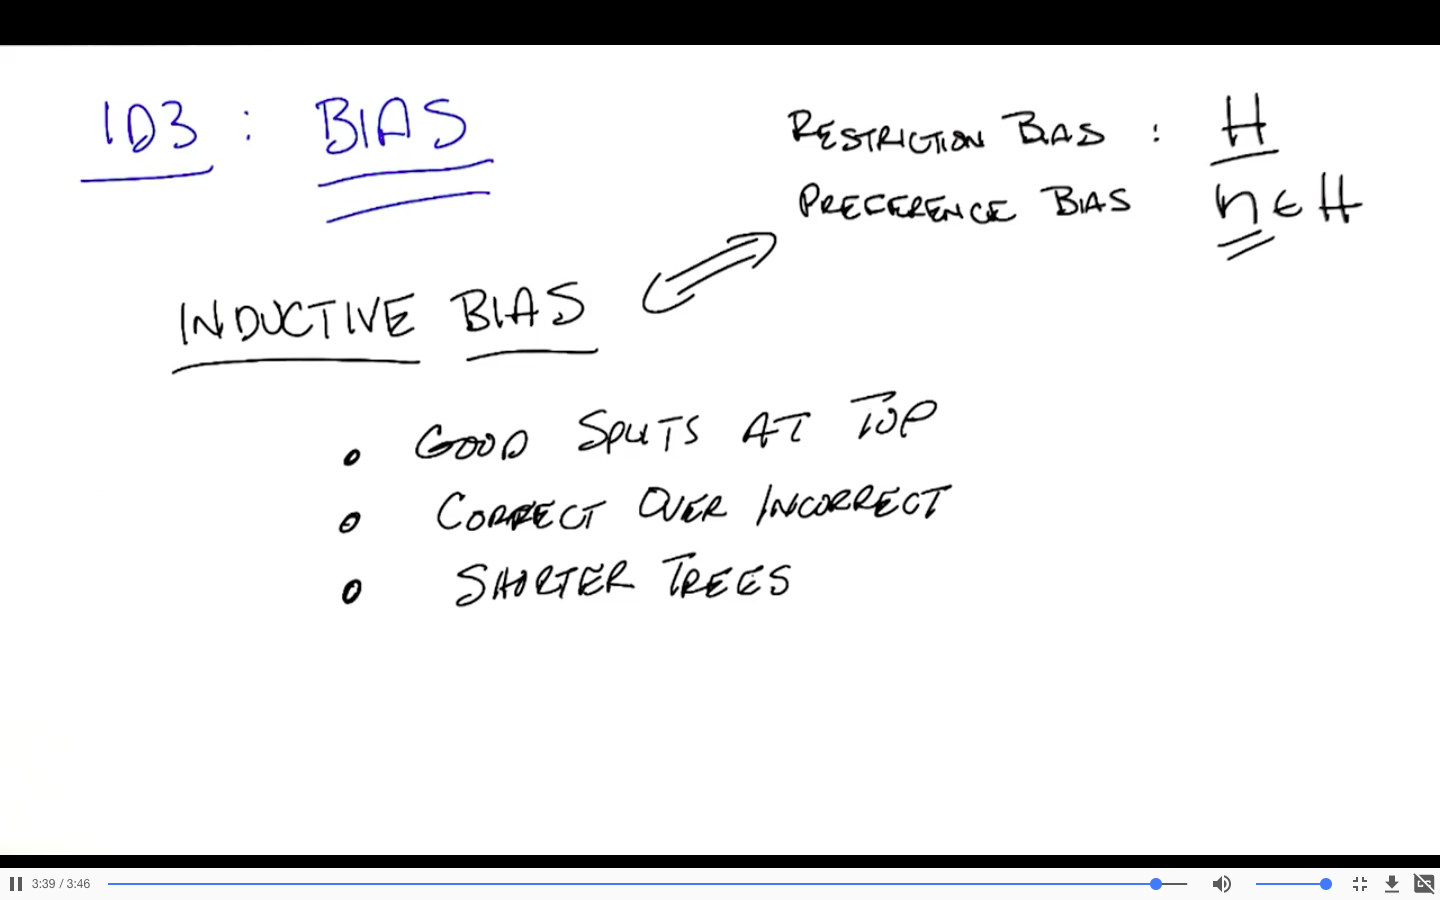 ID3 : BIAS
RESTRICTION BIAS : H
PREFERENCE BIAS h ∈ H
INDUCTIVE BIAS
• GOOD SPLITS AT TOP
• CORRECT OVER INCORRECT
• SHORTER TREES
3:39 / 3:46